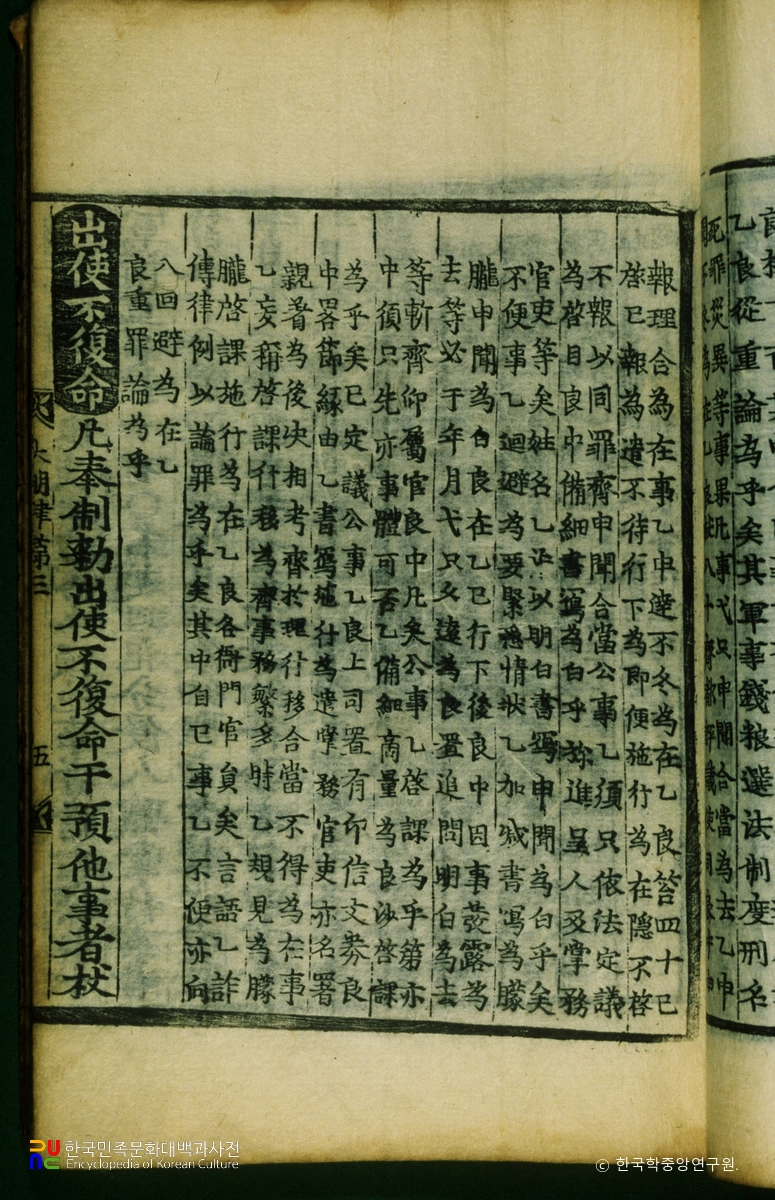 乙良從重論為乎矣其軍事錢粮選法制度刑名
死罪災異等事果凡事弋只申聞合當為去乙申
報理合為在事乙申達不冬為在乙良笞四十已
啓已報為遣不待行下為即便施行為在隱不啓
不報以同罪齊申聞合當公事乙須只依法定議
為啓目良中備細書寫為白乎㫆進呈人及掌務
官吏等矣姓名乙以明白書寫申聞為白乎矣
不便事乙迴避為要緊情狀乙加减書寫為朦
朧申聞為白良在乙已行下後良中因事發露為
去等必于年月弋只久遠為良置追問明白為去
等斬齊仰屬官良中凡矣公事乙啓課為乎第亦
中須只先亦事體可否乙備細商量為良沙啓課
為乎矣已定議公事乙良上司置有印信文券良
中畧節緣由乙書寫施行為遣掌務官吏亦名署
親着為後次相考齊於理行移合當不得為在事
乙妄稱啓課行移為齊事務繁多時乙規見為朦
朧啓課施行為在乙良各衙門官員矣言語乙詐
傳律例以論罪為乎矣其中自已事乙不便亦向
入回避為在乙
良重罪論為乎
出使不復命凡奉制勅出使不復命干預他事者杖
大明律第三 五
한국민족문화대백과사전
Encyclopedia of Korean Culture
© 한국학중앙연구원.